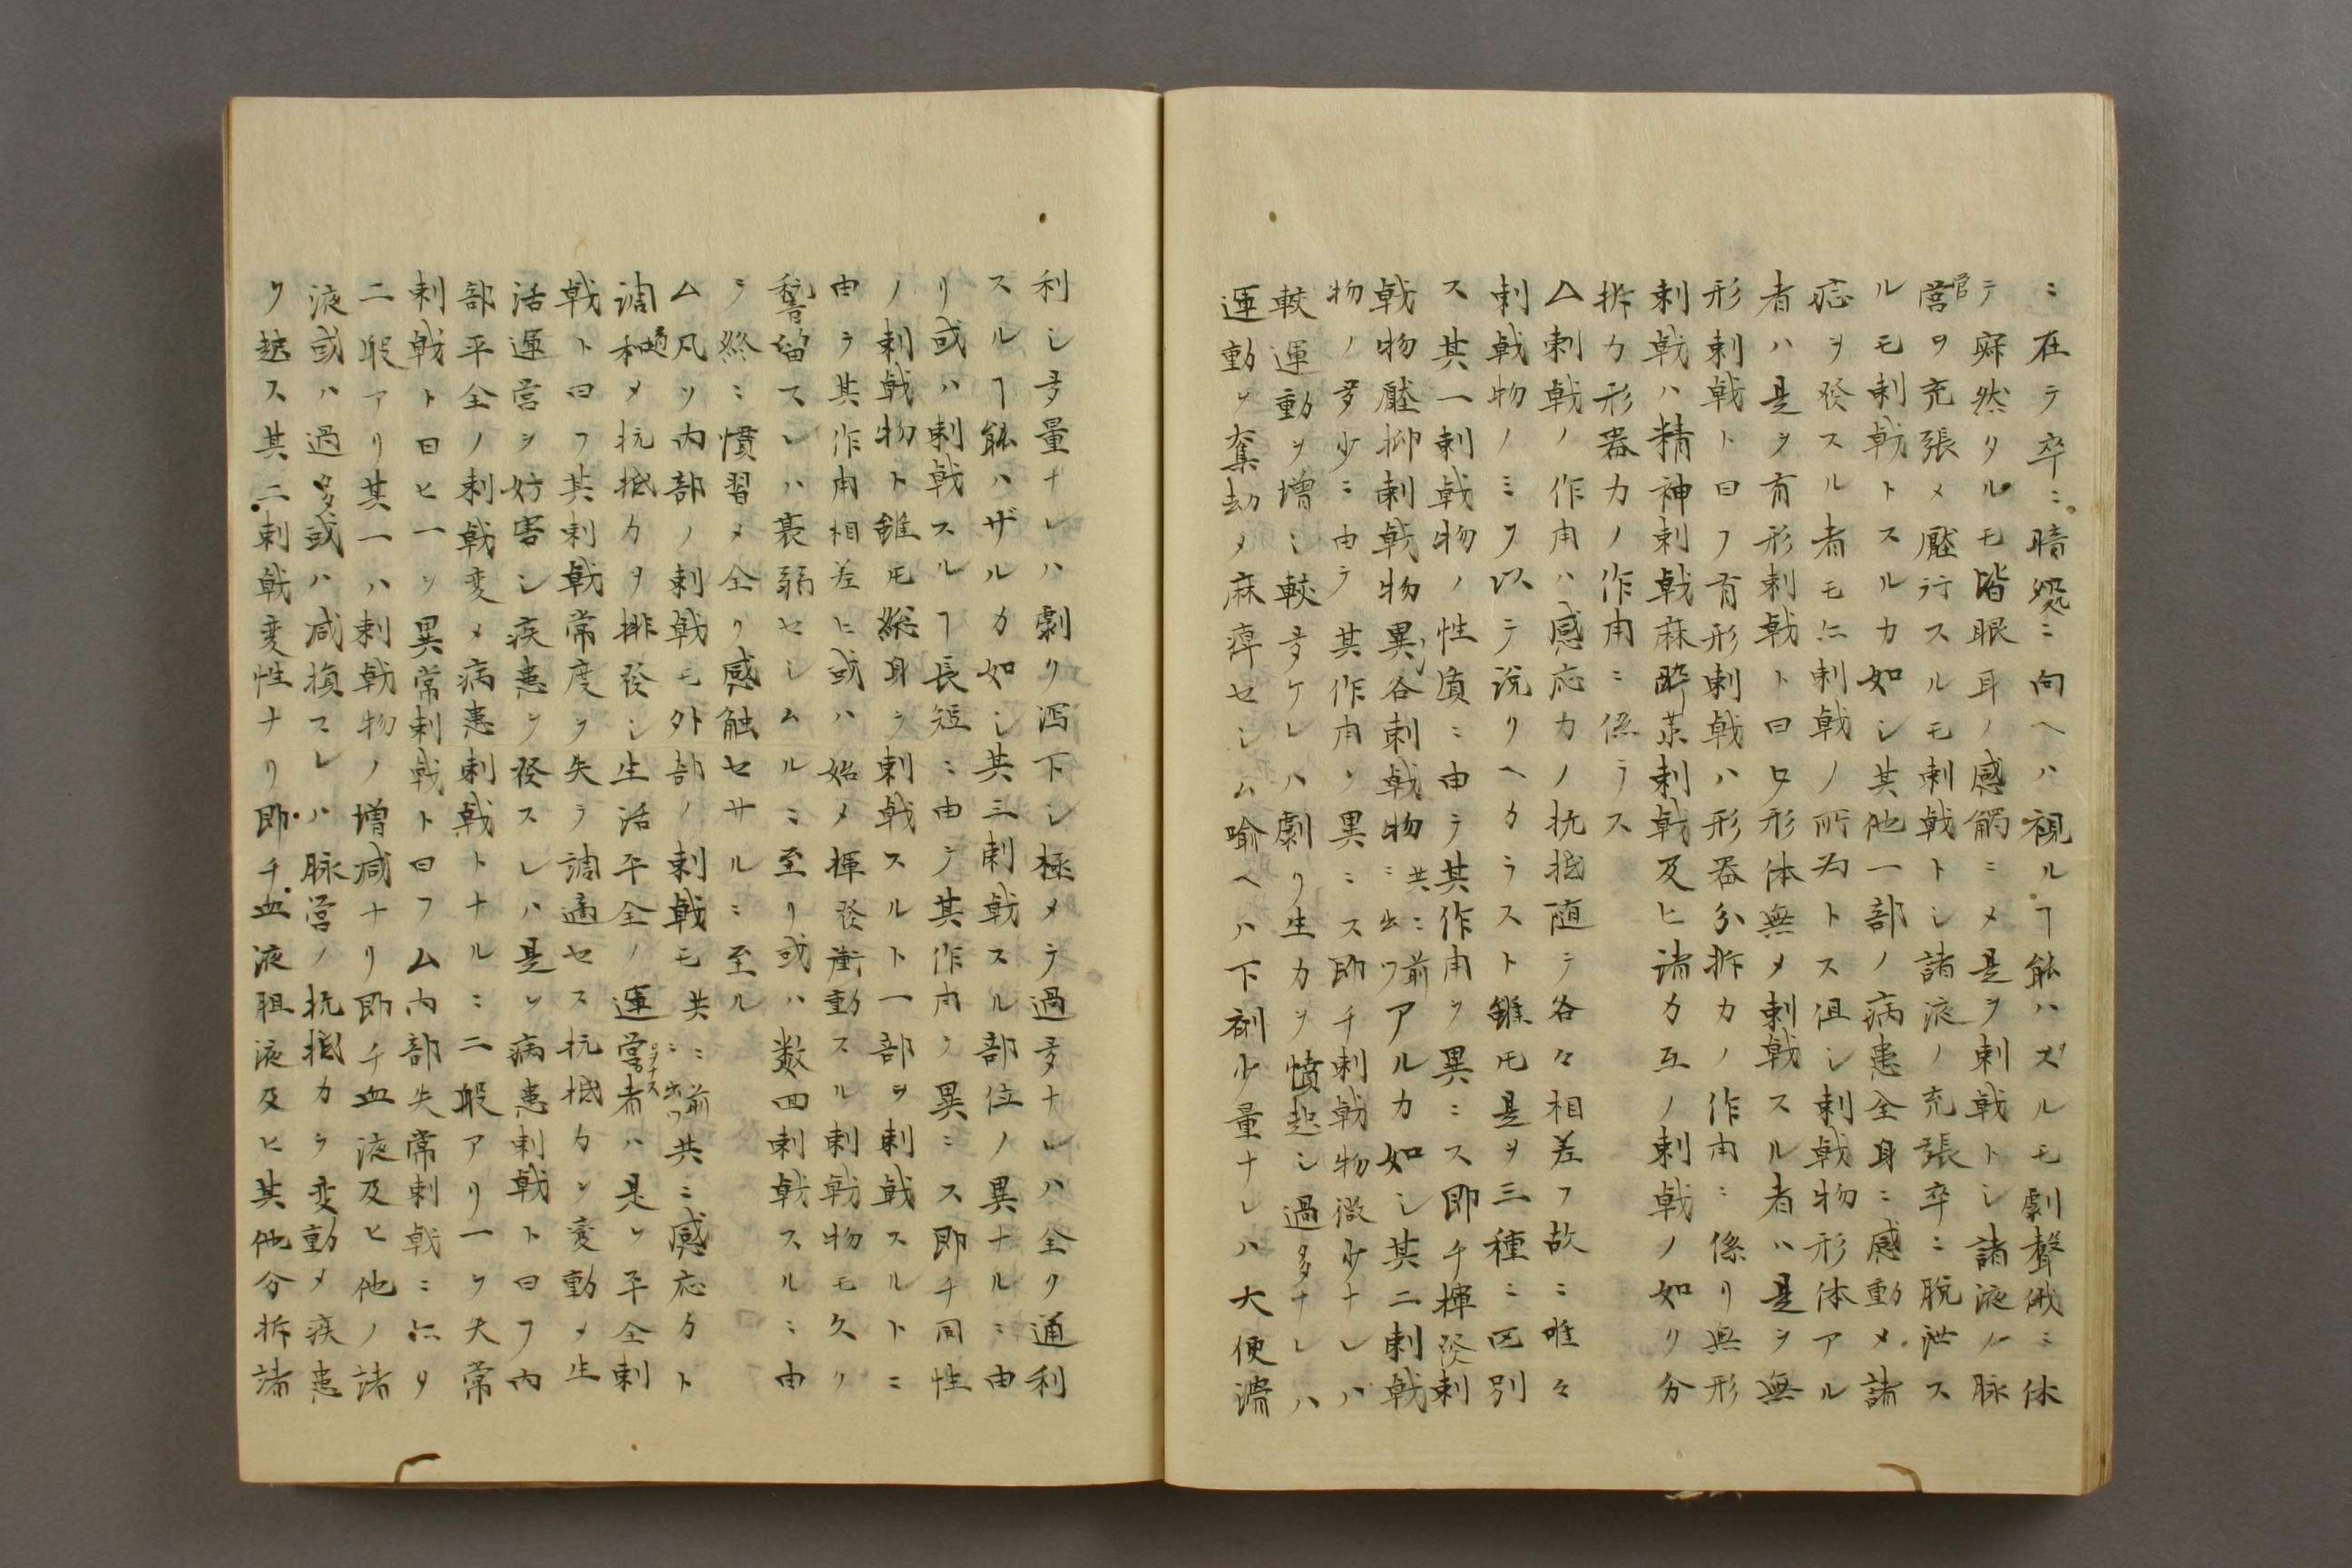 ニ在テ卒ニ暗処ニ向ヘハ視ルヿ能ハズルモ劇聲俄ニ休
テ寂然タルモ皆眼耳ノ感觸ニメ是ヲ刺戟トシ諸液ノ脉
営管ヲ充張メ壓行スルモ刺戟トシ諸液ノ充張卒ニ脱泄ス
ルモ刺戟トスルカ如シ其他一部ノ病患全身ニ感動メ諸
症ヲ發スル者モ亦刺戟ノ所為トス但シ刺戟物形体アル
者ハ是ヲ有形刺戟ト曰ヒ形体無メ刺戟スル者ハ是ヲ無
形刺戟ト曰フ有形刺戟ハ形器分拆力ノ作用ニ係リ無形
刺戟ハ精神刺戟麻酔薬刺戟及ヒ諸力互ノ刺戟ノ如リ分
拆力形器力ノ作用ニ係ラス
△刺戟ノ作用ハ感応力ノ抗抵随テ各々相差フ故ニ唯々
刺戟物ノミヲ以テ説リヘカラスト雖𪜈是ヲ三種ニ区別
ス其一刺戟物ノ性質ニ由テ其作用ヲ異ニス即チ揮発刺
戟物壓抑刺戟物異各刺戟物共ニ前ニ出ツアルカ如シ其二刺戟
物ノ多少ニ由テ其作用ヲ異ニス即チ刺戟物微少ナレハ
較運動ヲ増シ較多ケレハ劇リ生力ヲ憤起シ過多ナレハ
運動ヲ奪劫メ麻痺セシム喩ヘハ下剤少量ナレハ大便滞
利シ多量ナレハ劇リ瀉下シ極メテ過多ナレハ全ク通利
スルヿ能ハザルカ如シ其三刺戟スル部位ノ異ナルニ由
リ或ハ刺戟スルヿ長短ニ由テ其作用ヲ異ニス即チ同性
ノ刺戟物ト雖𪜈総身ヲ刺戟スルト一部ヲ刺戟スルトニ
由テ其作用相差ヒ或ハ始メ揮発衝動スル刺戟物モ久ク
稽留スレハ衰弱セシムルニ至リ或ハ数回刺戟スルニ由
テ終ニ慣習メ全ク感触セサルニ至ル
△凡ソ内部ノ刺戟モ外部ノ刺戟モ共ニ前ニ出ツ共ニ感応力ト
調和適メ抗抵力ヲ排発シ生活平全ノ運営ヲナス者ハ是ヲ平全刺
戟ト曰フ其刺戟常度ヲ失テ調適セス抗抵力ヲ変動メ生
活運営ヲ妨害シ疾患ヲ発スレハ是ヲ病患刺戟ト曰フ内
部平全ノ刺戟変メ病患刺戟トナルニ二般アリ一ヲ失常
刺戟ト曰ヒ一ヲ異常刺戟ト曰フ△内部失常刺戟ニ亦タ
二般アリ其一ハ刺戟物ノ増減ナリ即チ血液及ヒ他ノ諸
液或ハ過多或ハ減損スレハ脉営ノ抗抵力ヲ変動メ疾患
ヲ起ス其二刺戟変性ナリ即チ血液胆液及ヒ其他分拆諸